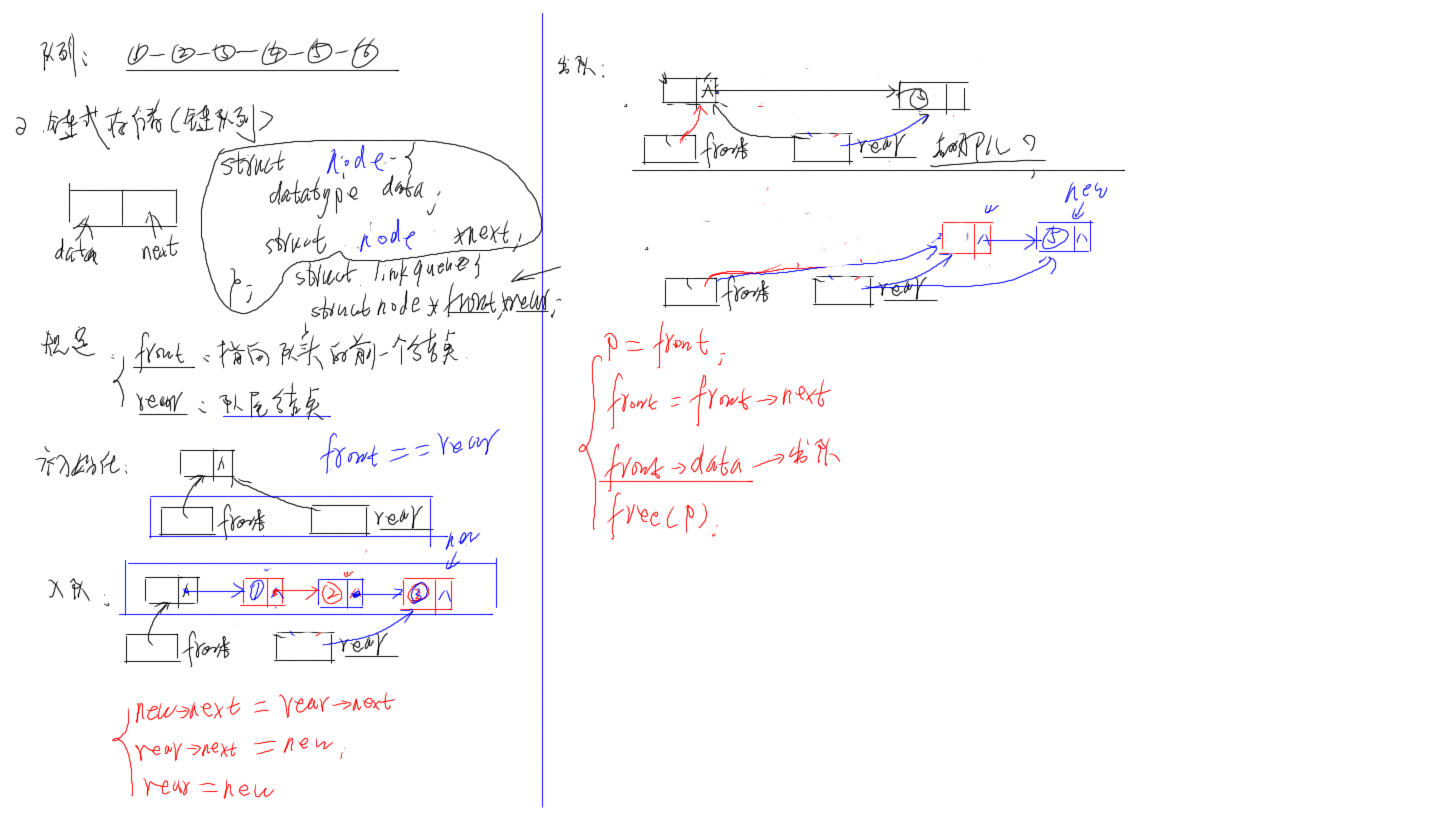 队列: ①-②-③-④-⑤-⑥
2 链式存储(链队列)
data next
struct node {
datatype data;
struct node *next;
};
struct linkqueue {
struct node *front, *rear;
规定:
front: 指向队头的前一个结点
rear: 队尾结点
初始化: ∧ front==rear
front rear
new
入队: ① ② ③ ∧
front rear
new→next = rear→next
rear→next = new;
rear = new
出队:
front rear
new
∧ ⑤ ∧
front rear
p = front;
front = front→next
front→data → 出队
free(p);